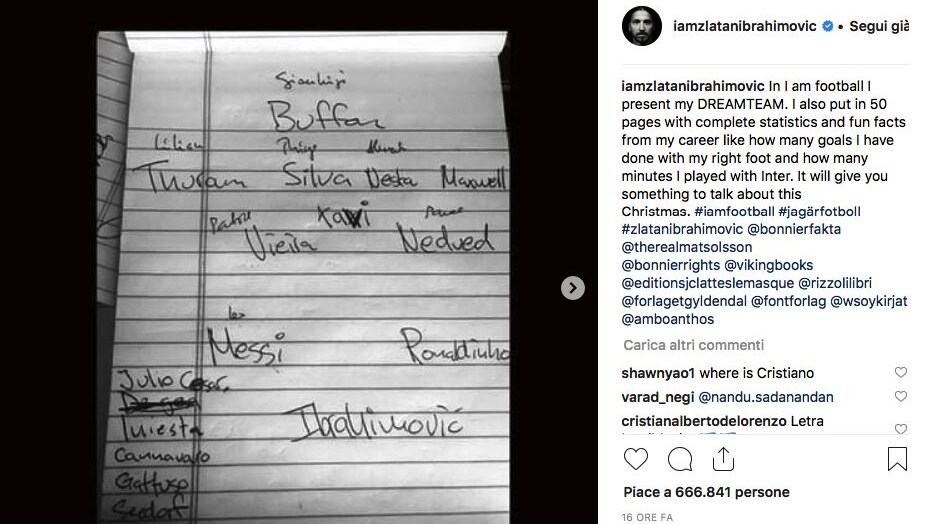 Gianluigi
Buffon
Lilian
Thuram Silva Nesta Maxwell
Xavi
Patrick
Vieira Nedved
Leo
Messi Ronaldinho
Julio Cesar
Iniesta Ibrahimović
Cannavaro
Gattuso
Seedorf
iamzlatanibrahimovic • Segui già
iamzlatanibrahimovic In I am football I
present my DREAMTEAM. I also put in 50
pages with complete statistics and fun facts
from my career like how many goals I have
done with my right foot and how many
minutes I played with Inter. It will give you
something to talk about this
Christmas. #iamfootball #jagärfotboll
#zlatanibrahimovic @bonnierfakta
@therealmatsolsson
@bonnierrights @vikingbooks
@editionsjclatteslemasque @rizzolilibri
@forlagetgyldendal @fontforlag @wsoykirjat
@amboanthos
Carica altri commenti
shawnyao1 where is Cristiano
varad_negi @nandu.sadanandan
cristianalbertodelorenzo Letra
Piace a 666.841 persone
16 ORE FA